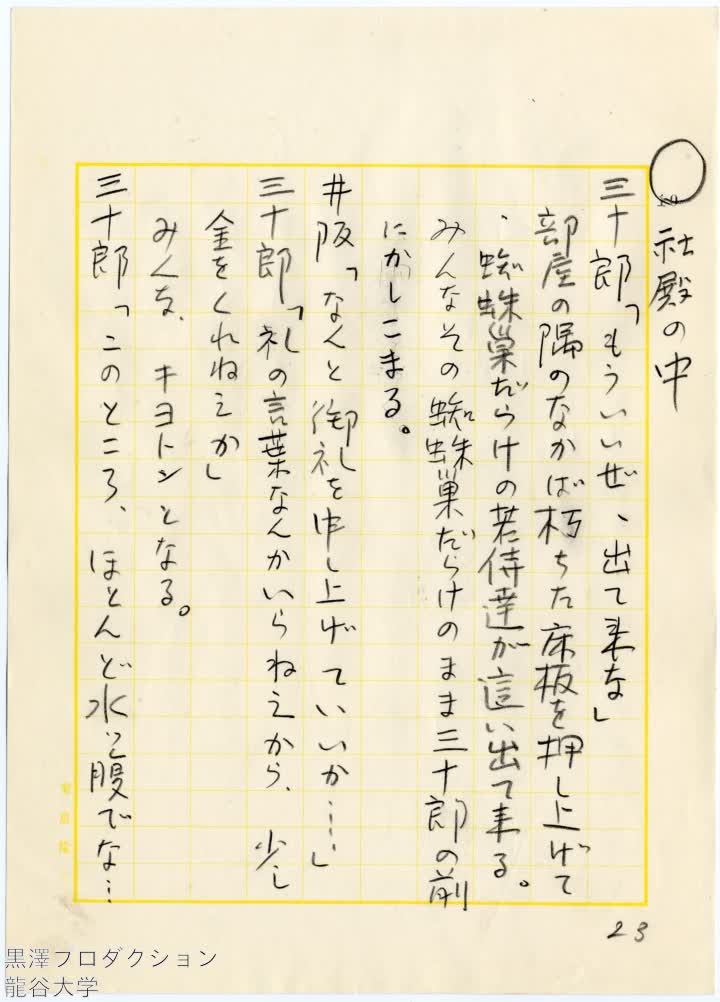 社殿の中
三十郎「もういいぜ、出て来な」
部屋の隅のなかば朽ちた床板を押し上げて
、蜘蛛巣だらけの若侍達が這い出て来る。
みんなその蜘蛛巣だらけのまま三十郎の前
にかしこまる。
井阪「なんと御礼を申し上げていいか……」
三十郎「礼の言葉なんかいらねえから、少し
金をくれねえか」
みんな、キョトンとなる。
三十郎「このところ、ほとんど水ッ腹でな…
23
黒澤プロダクション
龍谷大学